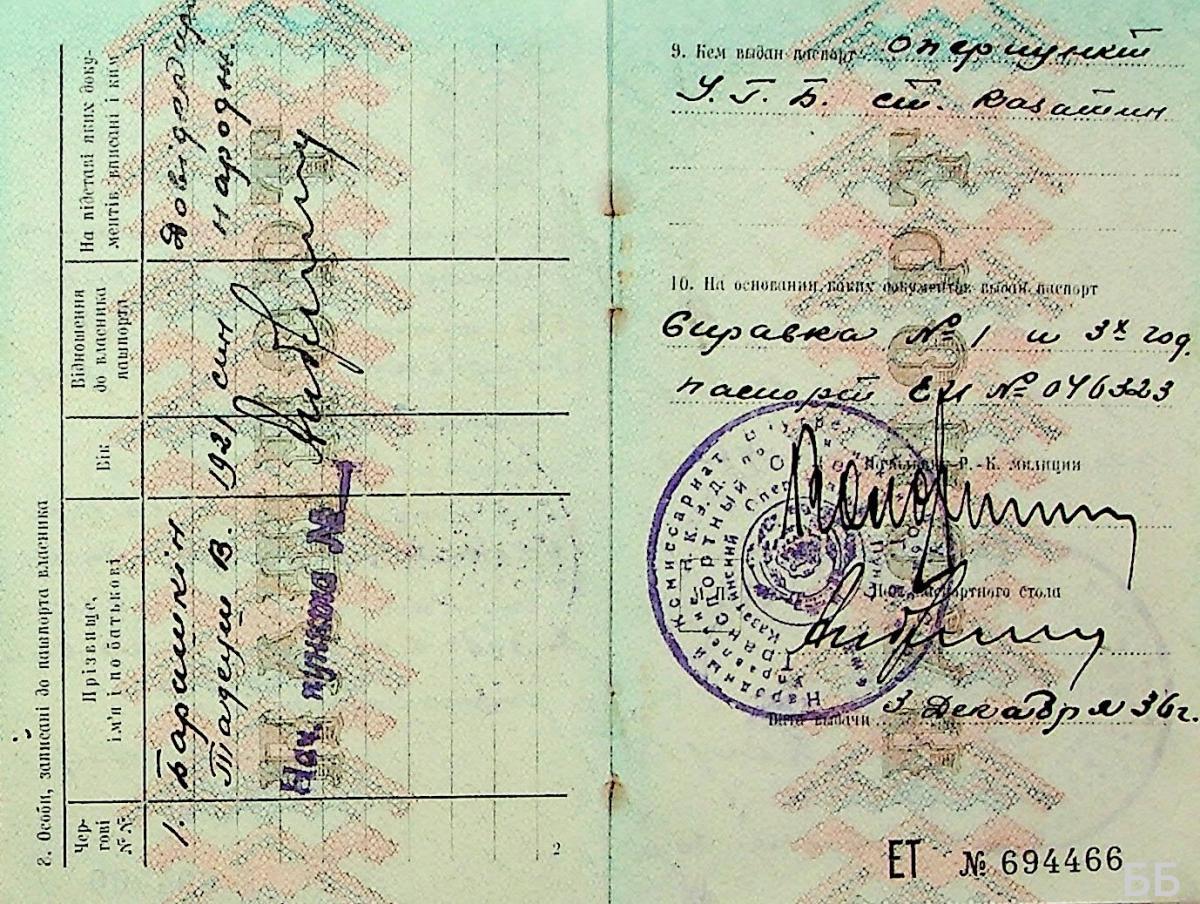 8. Особи, записані до пашпорта власника
Чер-
гові
№ №
Прізвище,
ім'я і по батькові
Вік
Відношення
до власника
пашпорта
На підставі яких доку-
ментів вписані і ким
1. Барашкін
Тадеуш В.
1921
син
Довідка
народж.
Нач пункта №
2
9. Кем выдан паспорт оперпункт
У.Г.Б. ст. Казатин
10. На основании каких документов выдан паспорт
Справка № 1 и 3х год.
паспорт ЕИ № 046323
Начальник Р.-К. милиции
Нач. паспортного стола
Народный Комиссариат Внутрен
Управление Н.К.В.Д. по
Транспортный
Казатинский Опер
Дата выдачи 3 Декабря 36 г.
ЕТ № 694466
ПАСПОРТ
ББ